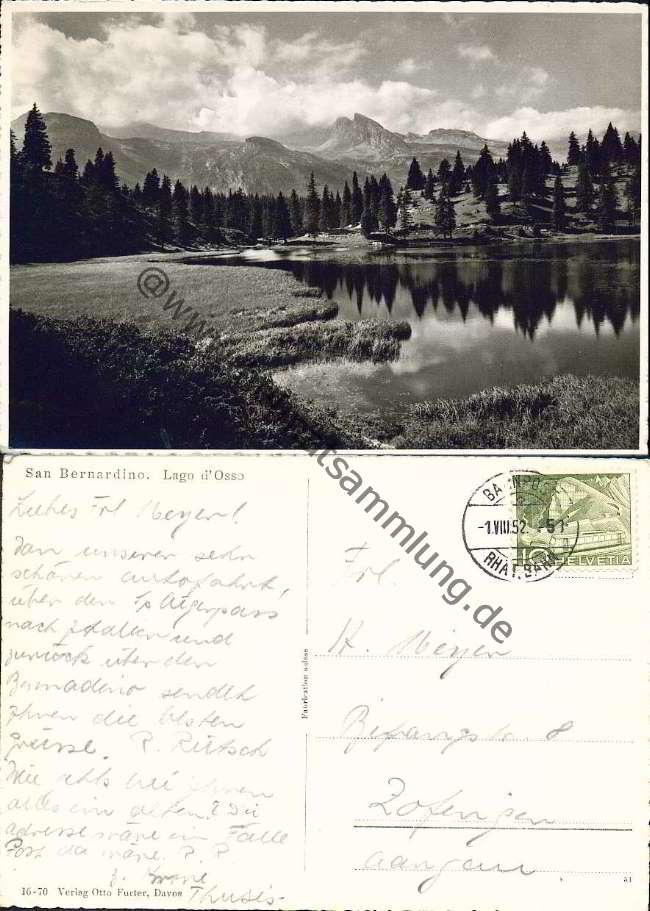 San Bernardino. Lago d'Osso
Liebes Frl Meyer!
Von unserer sehr
schönen Autofahrt,
über den
nach Italien und
zurück über den
Bernadino sendet
Ihnen die besten
Grüsse. P. Rütsch
Wie geht's bei Ihnen
alles im alten? Die
adresse wäre im Falle
Post da wäre. P. R.
Thusis-
16-70 Verlag Otto Furter, Davos
Fabrication suisse
BAHNPOST
-1.VIII.52
RHÄT. BAHN
10 HELVETIA
Frl.
H. Meyer
Bifangstr. 8
Zofingen
Aargau
51